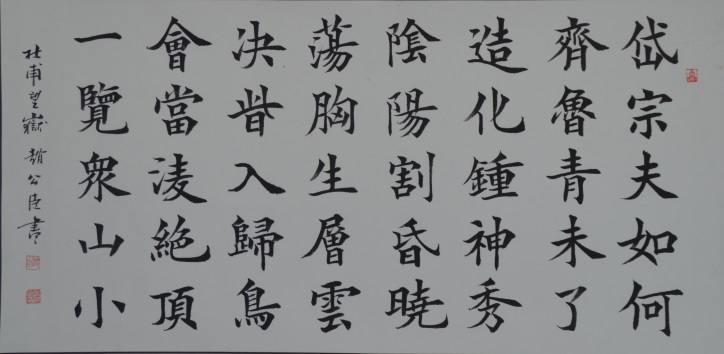 岱宗夫如何
齊魯青未了
造化鍾神秀
陰陽割昏曉
蕩胸生層雲
决眥入歸鳥
會當淩絕頂
一覽衆山小
杜甫望嶽 趙公臣書